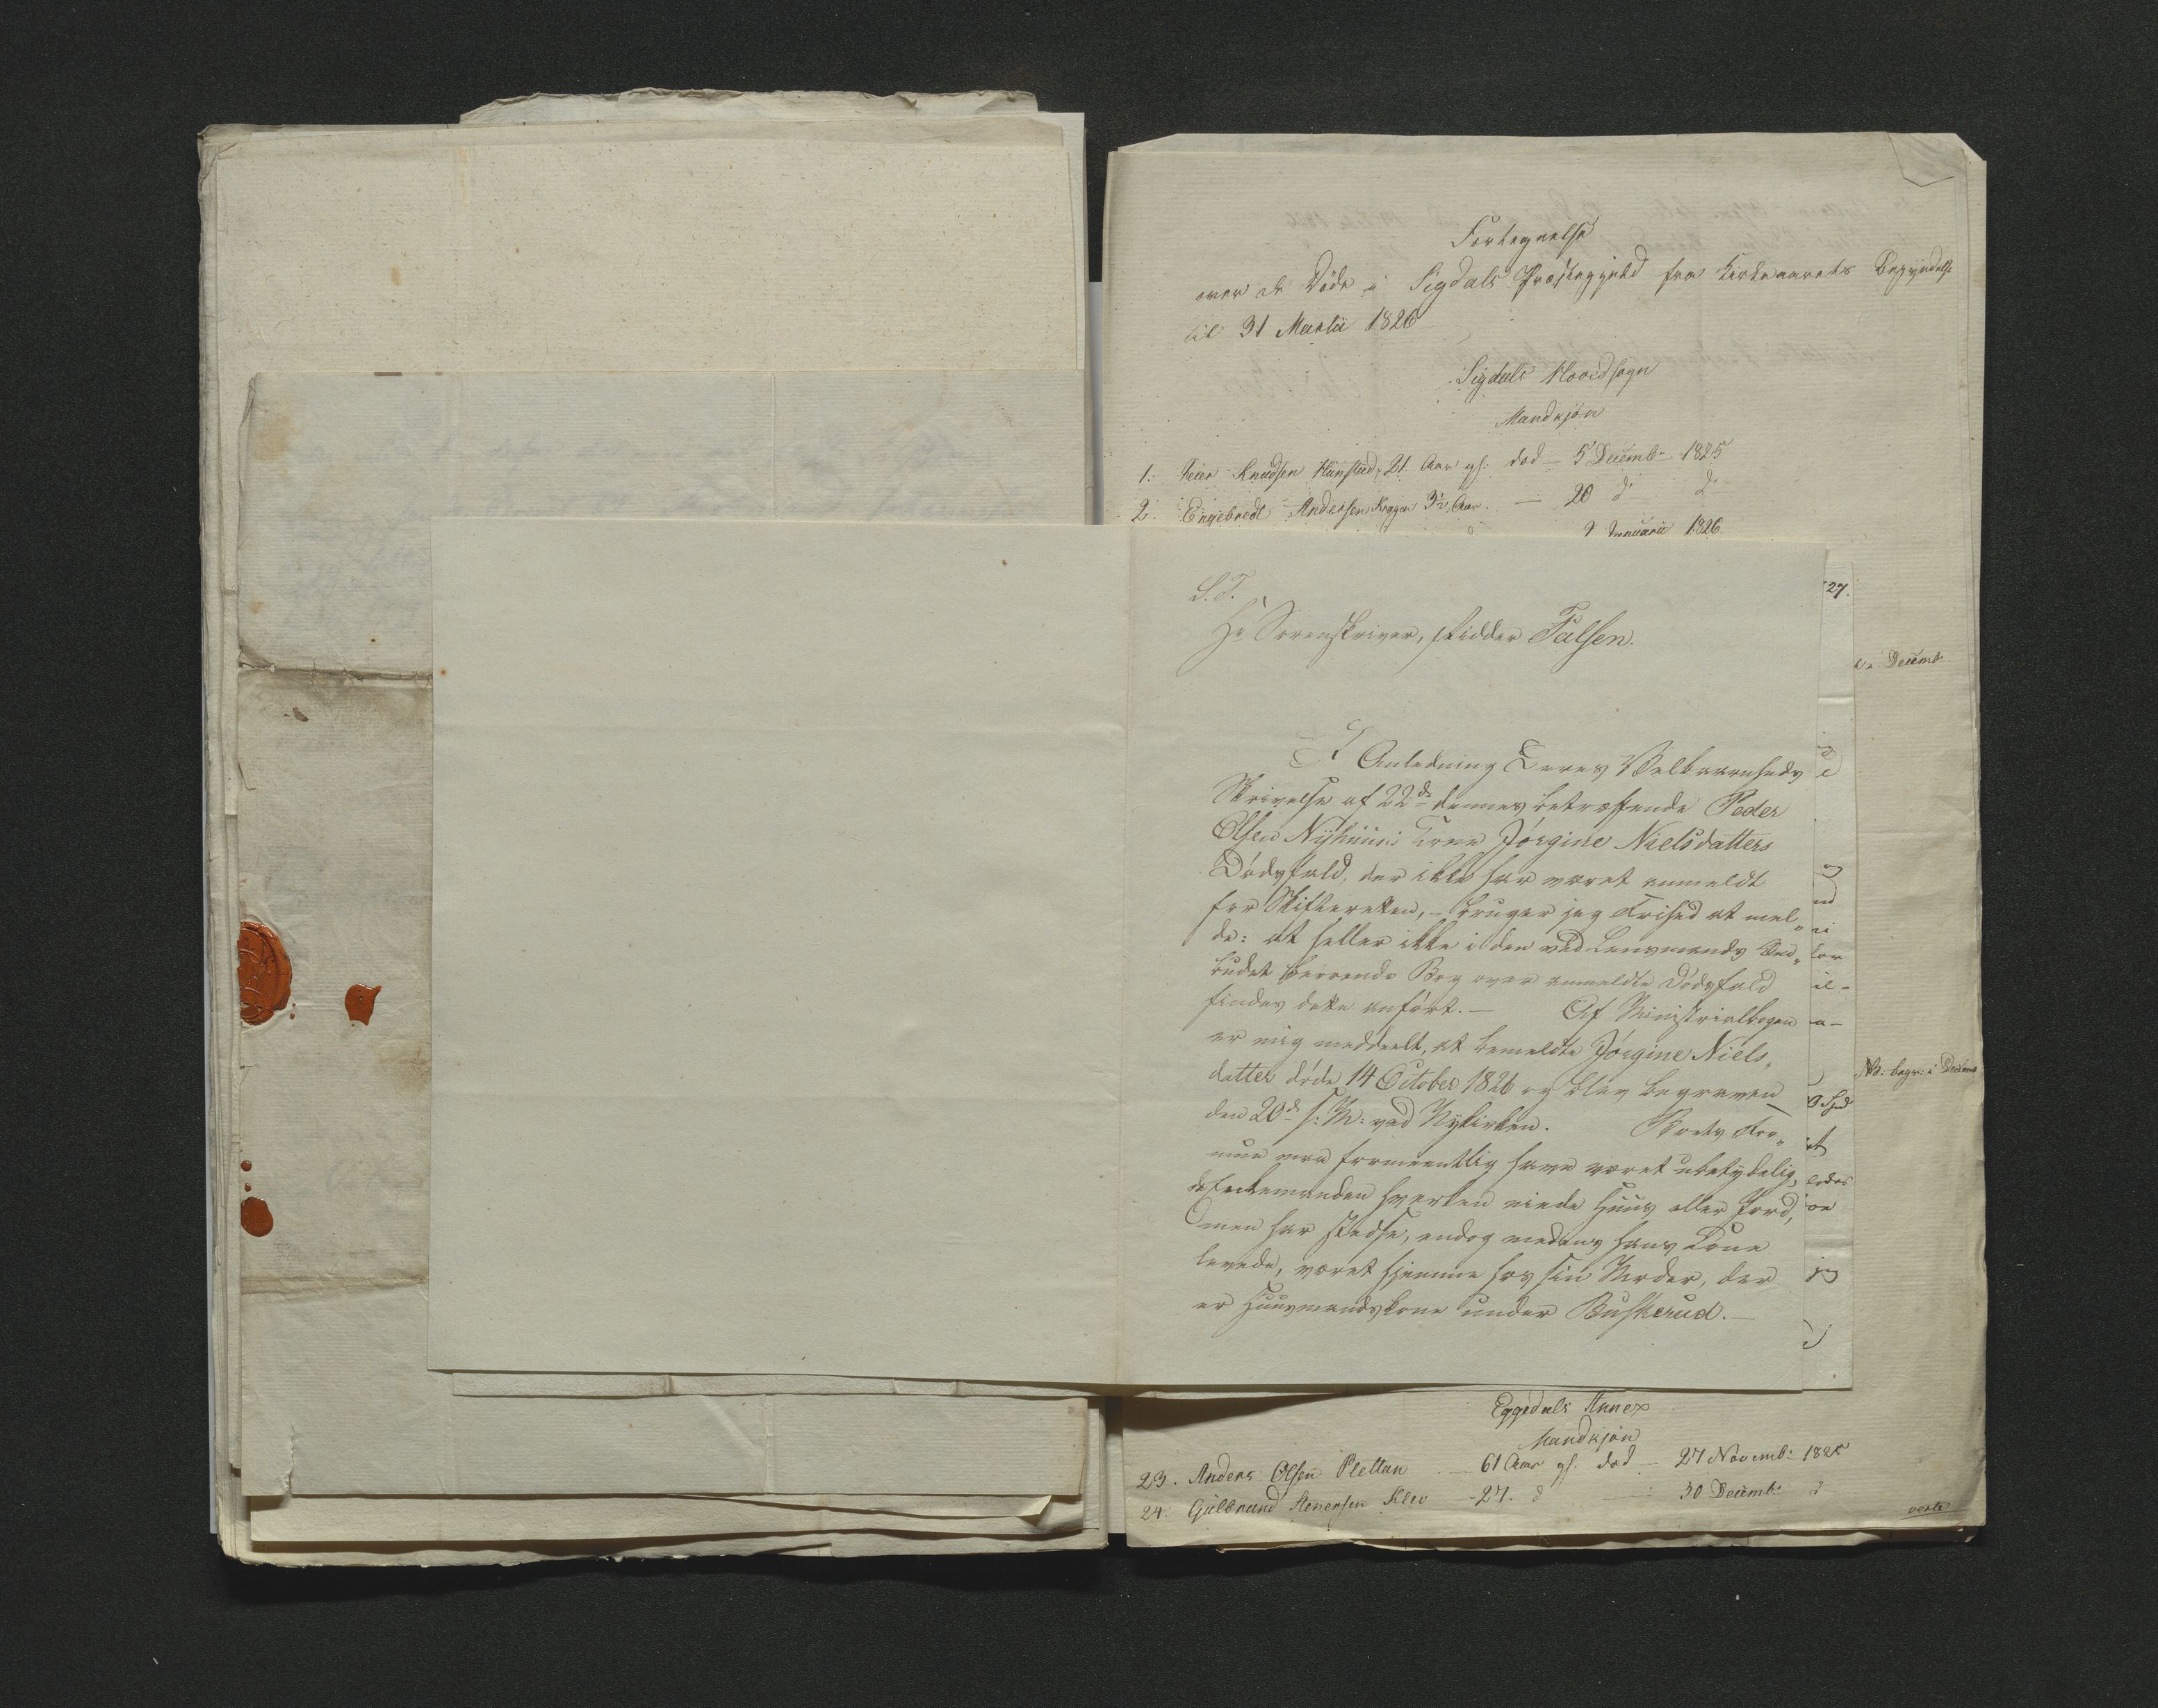 Fortegnelse
over de Døde i Sigdals Præstegjeld fra Kirkeaarets Begyndelse
til 31 Martii 1826
Sigdals Hovedsogn
Mandkjøn
1. Knudsen Hunstad, 21 Aar gl. død 5 Decemb. 1825
2. Engebredt Andersen Kragen 3½ Aar. — 20 d° d°
Januarii 1826
27.
S. T.
Hr Sorenskriver, Ridder Falsen.
I Anledning Deres Velbaarenheds
Skrivelse af 22de dennes betræffende Peder
Olsen Nyhuus Kone Jørgine Nielsdatters
Dødsfald, der ikke har været anmeldt
for Skifteretten, – bruger jeg Frihed at mel„
de: at heller ikke i den ved Lensmands Om„
budet beroende Bog over anmeldte Dødsfald
findes dette anført. — Af Ministrialbogen
er mig meddeelt, at bemeldte Jørgine Niels„
datter døde 14 October 1826 og blev begraven
den 20de s: M: ved Nykirken. Boets For„
mue maa formeentlig have været ubetydelig,
da Enkemanden hverken eiede Huus eller Jord,
men har stedse, endog medens hans Kone
levede, været hjemme hos sin Moder, der
er Huusmandskone under Buskerud. —
i Decemb.
NB. begr: i Decemb
Eggedals Annex
Mandkjøn
23. Anders Olsen Plettan — 61 Aar gl. død — 27 Novemb: 1825
24. Gulbrand Stenersen Klev — 27. d° — 30 Decemb: d°
verte